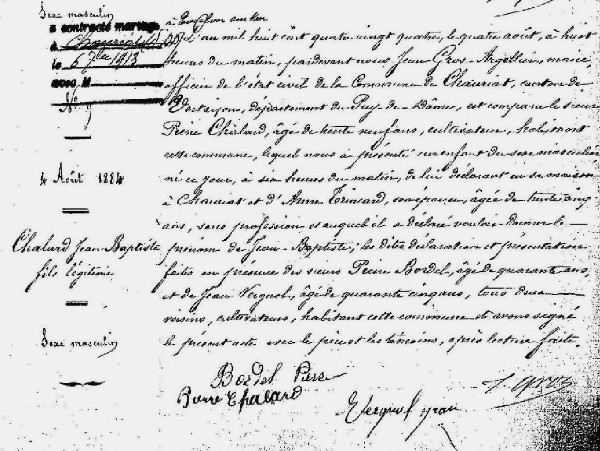 Sexe masculin
a contracté mariage
à
le 6 1913
avec M
N° 9
4 Août 1884
Chalard Jean-Baptiste
fils légitime
Sexe masculin
L'an mil huit cent quatre vingt quatre, le quatre août, à huit
heures du matin, pardevant nous Jean Gros-Argellier, maire,
officier de l'état civil de la Commune de Chauriat, canton de
Vertaizon, département du Puy-de-Dôme, est comparu le sieur
Pierre Chalard, âgé de trente neuf ans, cultivateur,
cette commune, lequel nous a présenté un enfant du sexe masculin
né ce jour, à six heures du matin, de lui déclarant en sa maison
à Chauriat et d'Anne son épouse, âgée de trente cinq
ans, sans profession et auquel il a déclaré vouloir donner le
prénom de Jean-Baptiste; les dites déclaration et présentation
faites en présence des sieurs Pierre Bordel, âgé de quarante ans,
et de Jean âgé de quarante cinq ans, tous deux
voisins, cultivateurs, habitant cette commune et avons signé
le présent acte avec le père et les témoins, après lecture faite.
Bordel Pierre
Pierre Chalard
J. Gros